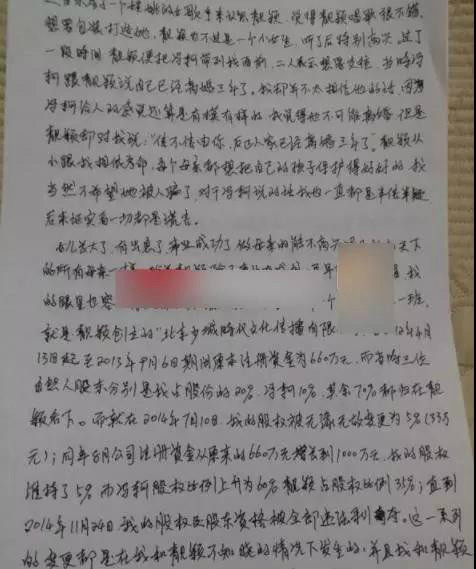 觉得靓颖唱歌很不错,
想要包装打造她,靓颖也不过是一个小女生,听了后特别高兴,过了
一段时间靓颖便把冯柯带到我面前,二人表示想要交往,当时冯
柯跟靓颖说自己已经离婚三年了。我却并不太相信他的话,因为
冯柯给人的感觉还算是有模有样的我觉得他不可能离婚,但是
靓颖却对我说:“信不信由你,反正人家已经离婚三年了”。靓颖从
小跟我相依为命,每个母亲都想把自己的孩子保护得好好的,我
当然不希望她被人骗了,对于冯柯说的话我也一直都是半信半疑
后来证实着一切都是谎言。
女儿长大了,有出息了,事业成功了,做母亲的能不高兴
天下
的所有母亲一样,
我
的眼里也容
个
一班,
就是靓颖创立的“北京少城时代文化传播有限
年4月
13日起至2013年9月6日期间原本注册资金为660万元,而当时三位
自然人股东分别是我占股份的20%,冯柯10%,其余70%都归在靓
颖名下。而就在2014年7月10日,我的股权被无端无故变更为5%(33万
元);同年8月公司注册资金从原来的660万元增长到1000万元,我的股权
维持了5%而冯柯股权比例上升为60%靓颖占股权比例35%;直到
2014年11月24日,我的股权及股东资格被全部违法剥夺。这一系列
的变更都是在我和靓颖不知晓的情况下发生的,并且我和靓颖